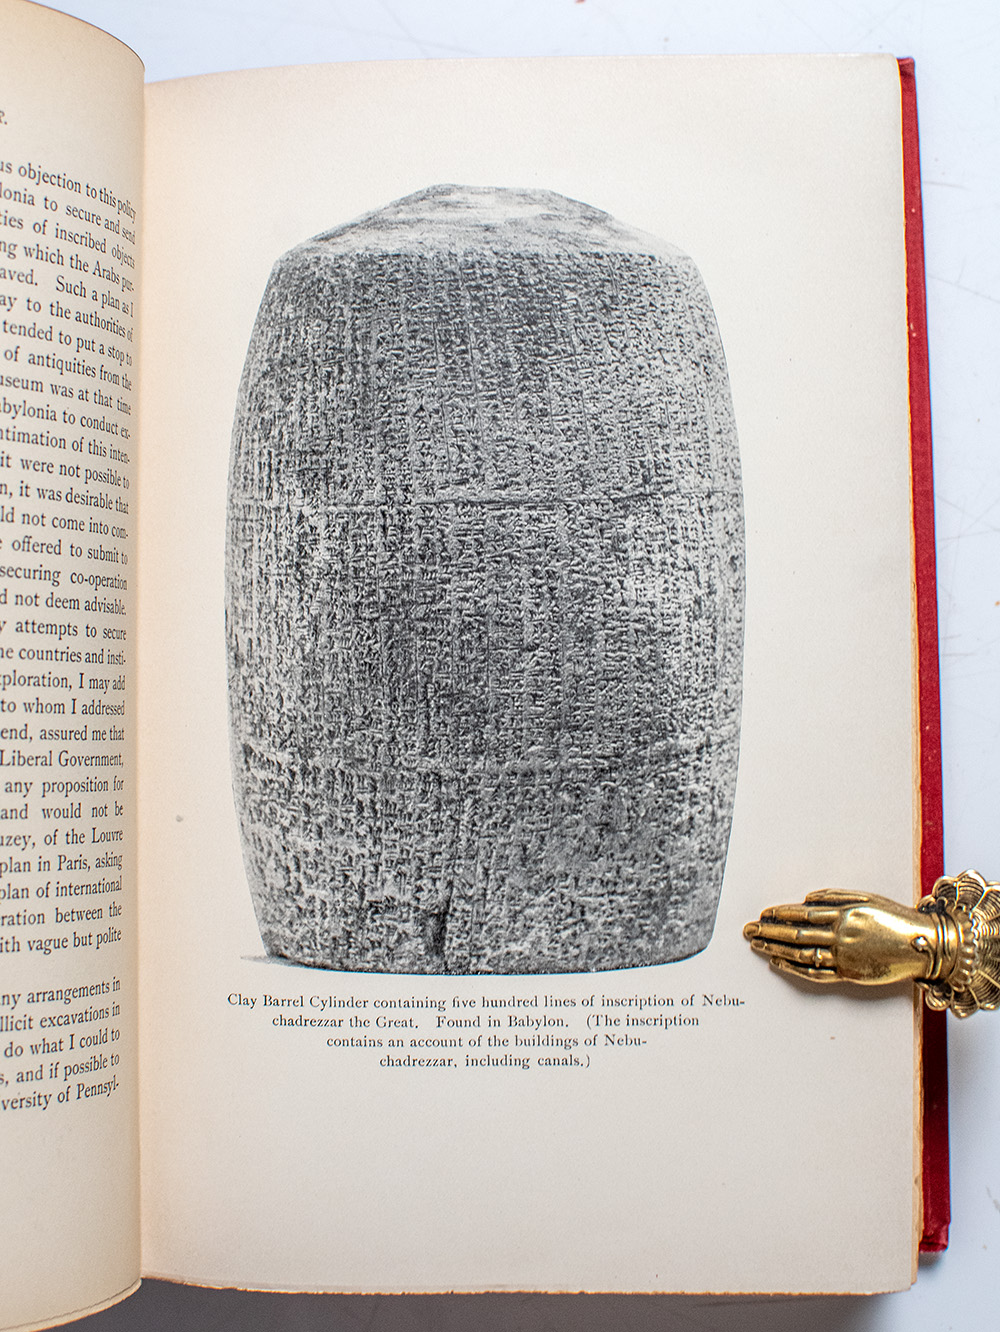 R.
us objection to this policy
lonia to secure and send
ties of inscribed objects
ng which the Arabs pur-
aved. Such a plan as I
ay to the authorities of
tended to put a stop to
of antiquities from the
useum was at that time
abylonia to conduct ex-
ntimation of this inten-
it were not possible to
n, it was desirable that
ld not come into com-
e offered to submit to
securing co-operation
d not deem advisable.
y attempts to secure
ne countries and insti-
xploration, I may add
to whom I addressed
end, assured me that
Liberal Government,
any proposition for
and would not be
uzey, of the Louvre
plan in Paris, asking
plan of international
ration between the
ith vague but polite
ny arrangements in
llicit excavations in
do what I could to
s, and if possible to
versity of Pennsyl-
Clay Barrel Cylinder containing five hundred lines of inscription of Nebu-
chadrezzar the Great. Found in Babylon. (The inscription
contains an account of the buildings of Nebu-
chadrezzar, including canals.)